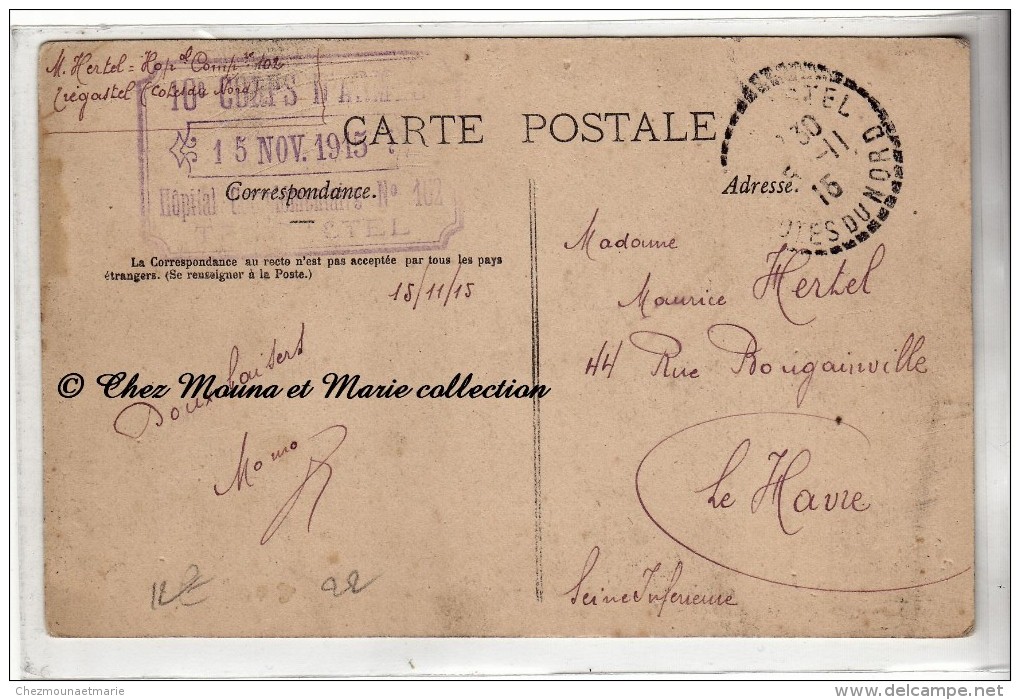 M. Hertel = Hop.al Comp.re 102
Trégastel (Cotes du Nord)
10e CORPS D'ARMÉE
15 NOV. 1915
Hôpital Complémentaire No 102
CARTE POSTALE
Correspondance.
Adresse.
La Correspondance au recto n'est pas acceptée par tous les pays
étrangers. (Se renseigner à la Poste.)
15/11/15
Doux baisers
Momo
Madame
Maurice Hertel
44 Rue Bougainville
Le Havre
Seine Inférieure
COTES DU NORD
30
11
15
© Chez Mouna et Marie collection
22
Chezmounaetmarie
www.delcampe.net